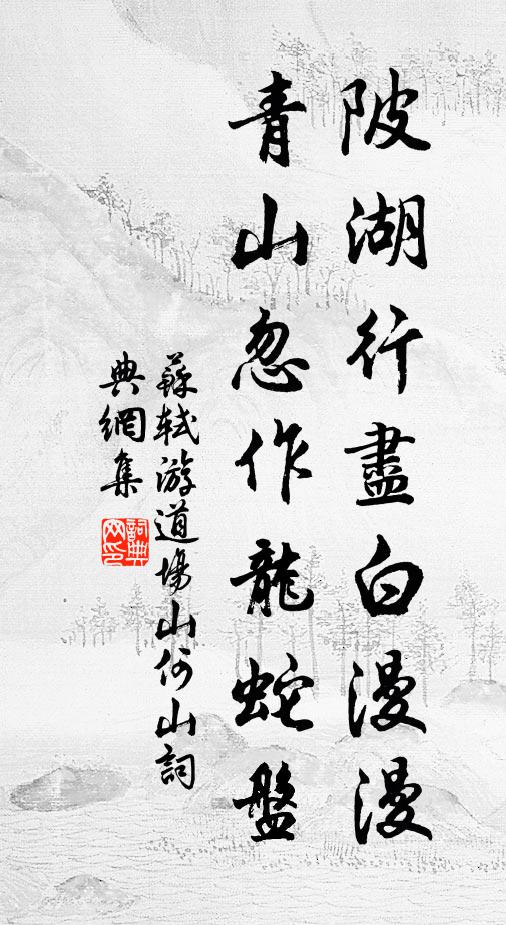 陂湖行盡白漫漫
青山忽作龍蛇盤
蘇軾游道場山何山詞
典網集
詞典
网印